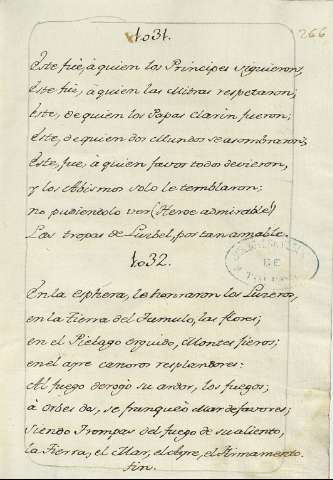 1031.
266
Este fuè, à quien los Principes siguieron,
este fuè, à quien las Mitras respetaron;
este, de quien los Papas Clarin fueron;
este, de quien dos Mundos se asombraron;
Este, fue, à quien favor todo devieron,
y los Abismos solo le temblaron;
no pudiendolo ver (Heroe admirable!)
Las tropas de Luzbel, por tan amable.
1032.
DE
En la esphera, le honraron los Luzeros,
en la Tierra del Tumulo, las flores;
en el Pielago erguido, Montes fieros;
en el ayre canoros resplandores:
Al fuego su ardor, los fuegos;
à orbes dos, se franqueò Mar de favores;
siendo Trompas del fuego de su aliento,
la Tierra, el Mar, el Ayre, el Firmamento.
fin.